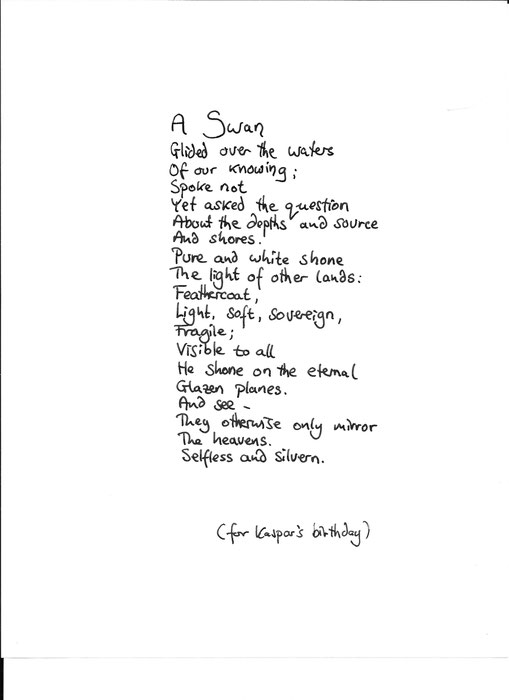 A Swan
Glided over the waters
Of our knowing;
Spoke not
Yet asked the question
About the depths and source
And shores.
Pure and white shone
The light of other lands:
Feathercoat,
Light, soft, sovereign,
Fragile;
Visible to all
He shone on the eternal
Glazen planes.
And see -
They otherwise only mirror
The heavens.
Selfless and silvern.
(for Kaspar's birthday)